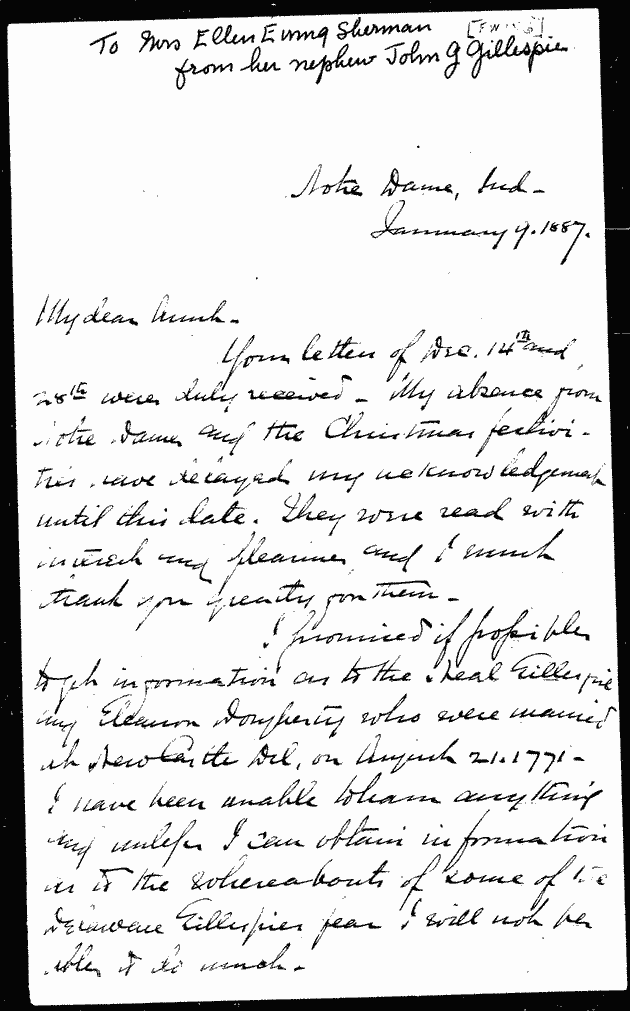 To Mrs Ellen Ewing Sherman
from her nephew John G Gillespie
Notre Dame, Ind -
January 9. 1887.
My dear Aunt -
Your letters of Dec. 14th and
28th were duly received - My absence from
Notre Dame and the Christmas festivi-
ties have delayed my acknowledgement
until this date. They were read with
interest and pleasure and I must
thank you greatly for them -
I promised if possible
to get information as to the Neal Gillespie
and Eleanor Dougherty who were married
at New Castle Del, on August 21. 1771 -
I have been unable to learn anything
and unless I can obtain information
as to the whereabouts of some of the
Delaware Gillespies fear I will not be
able to do much -